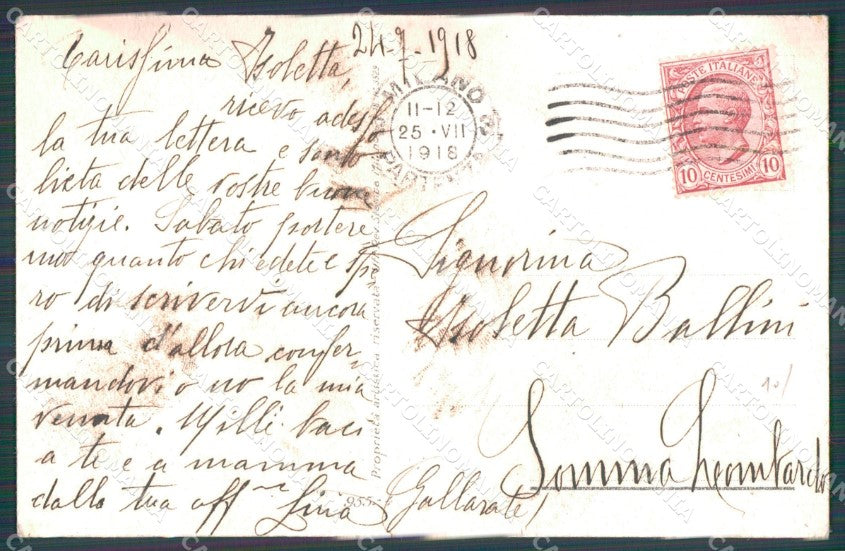 24-7-1918
Carissima Isoletta,
ricevo adesso
la tua lettera e sono
lieta delle vostre buone
notizie. Sabato portere
mo quanto chiedete e spe
ro di scrivervi ancora
prima d'allora confer-
mandovi o no la mia
venuta. Mille baci
a te e a mamma
dalla tua aff.ma Lina
MILANO
11-12
25 · VII
1918
PARTENZA
POSTE ITALIANE
10 CENTESIMI 10
Signorina
Isoletta Ballini
Somma Lombardo
(Gallarate)
Proprietà artistica riservata
955-
10/
CARTOLINOMANIA